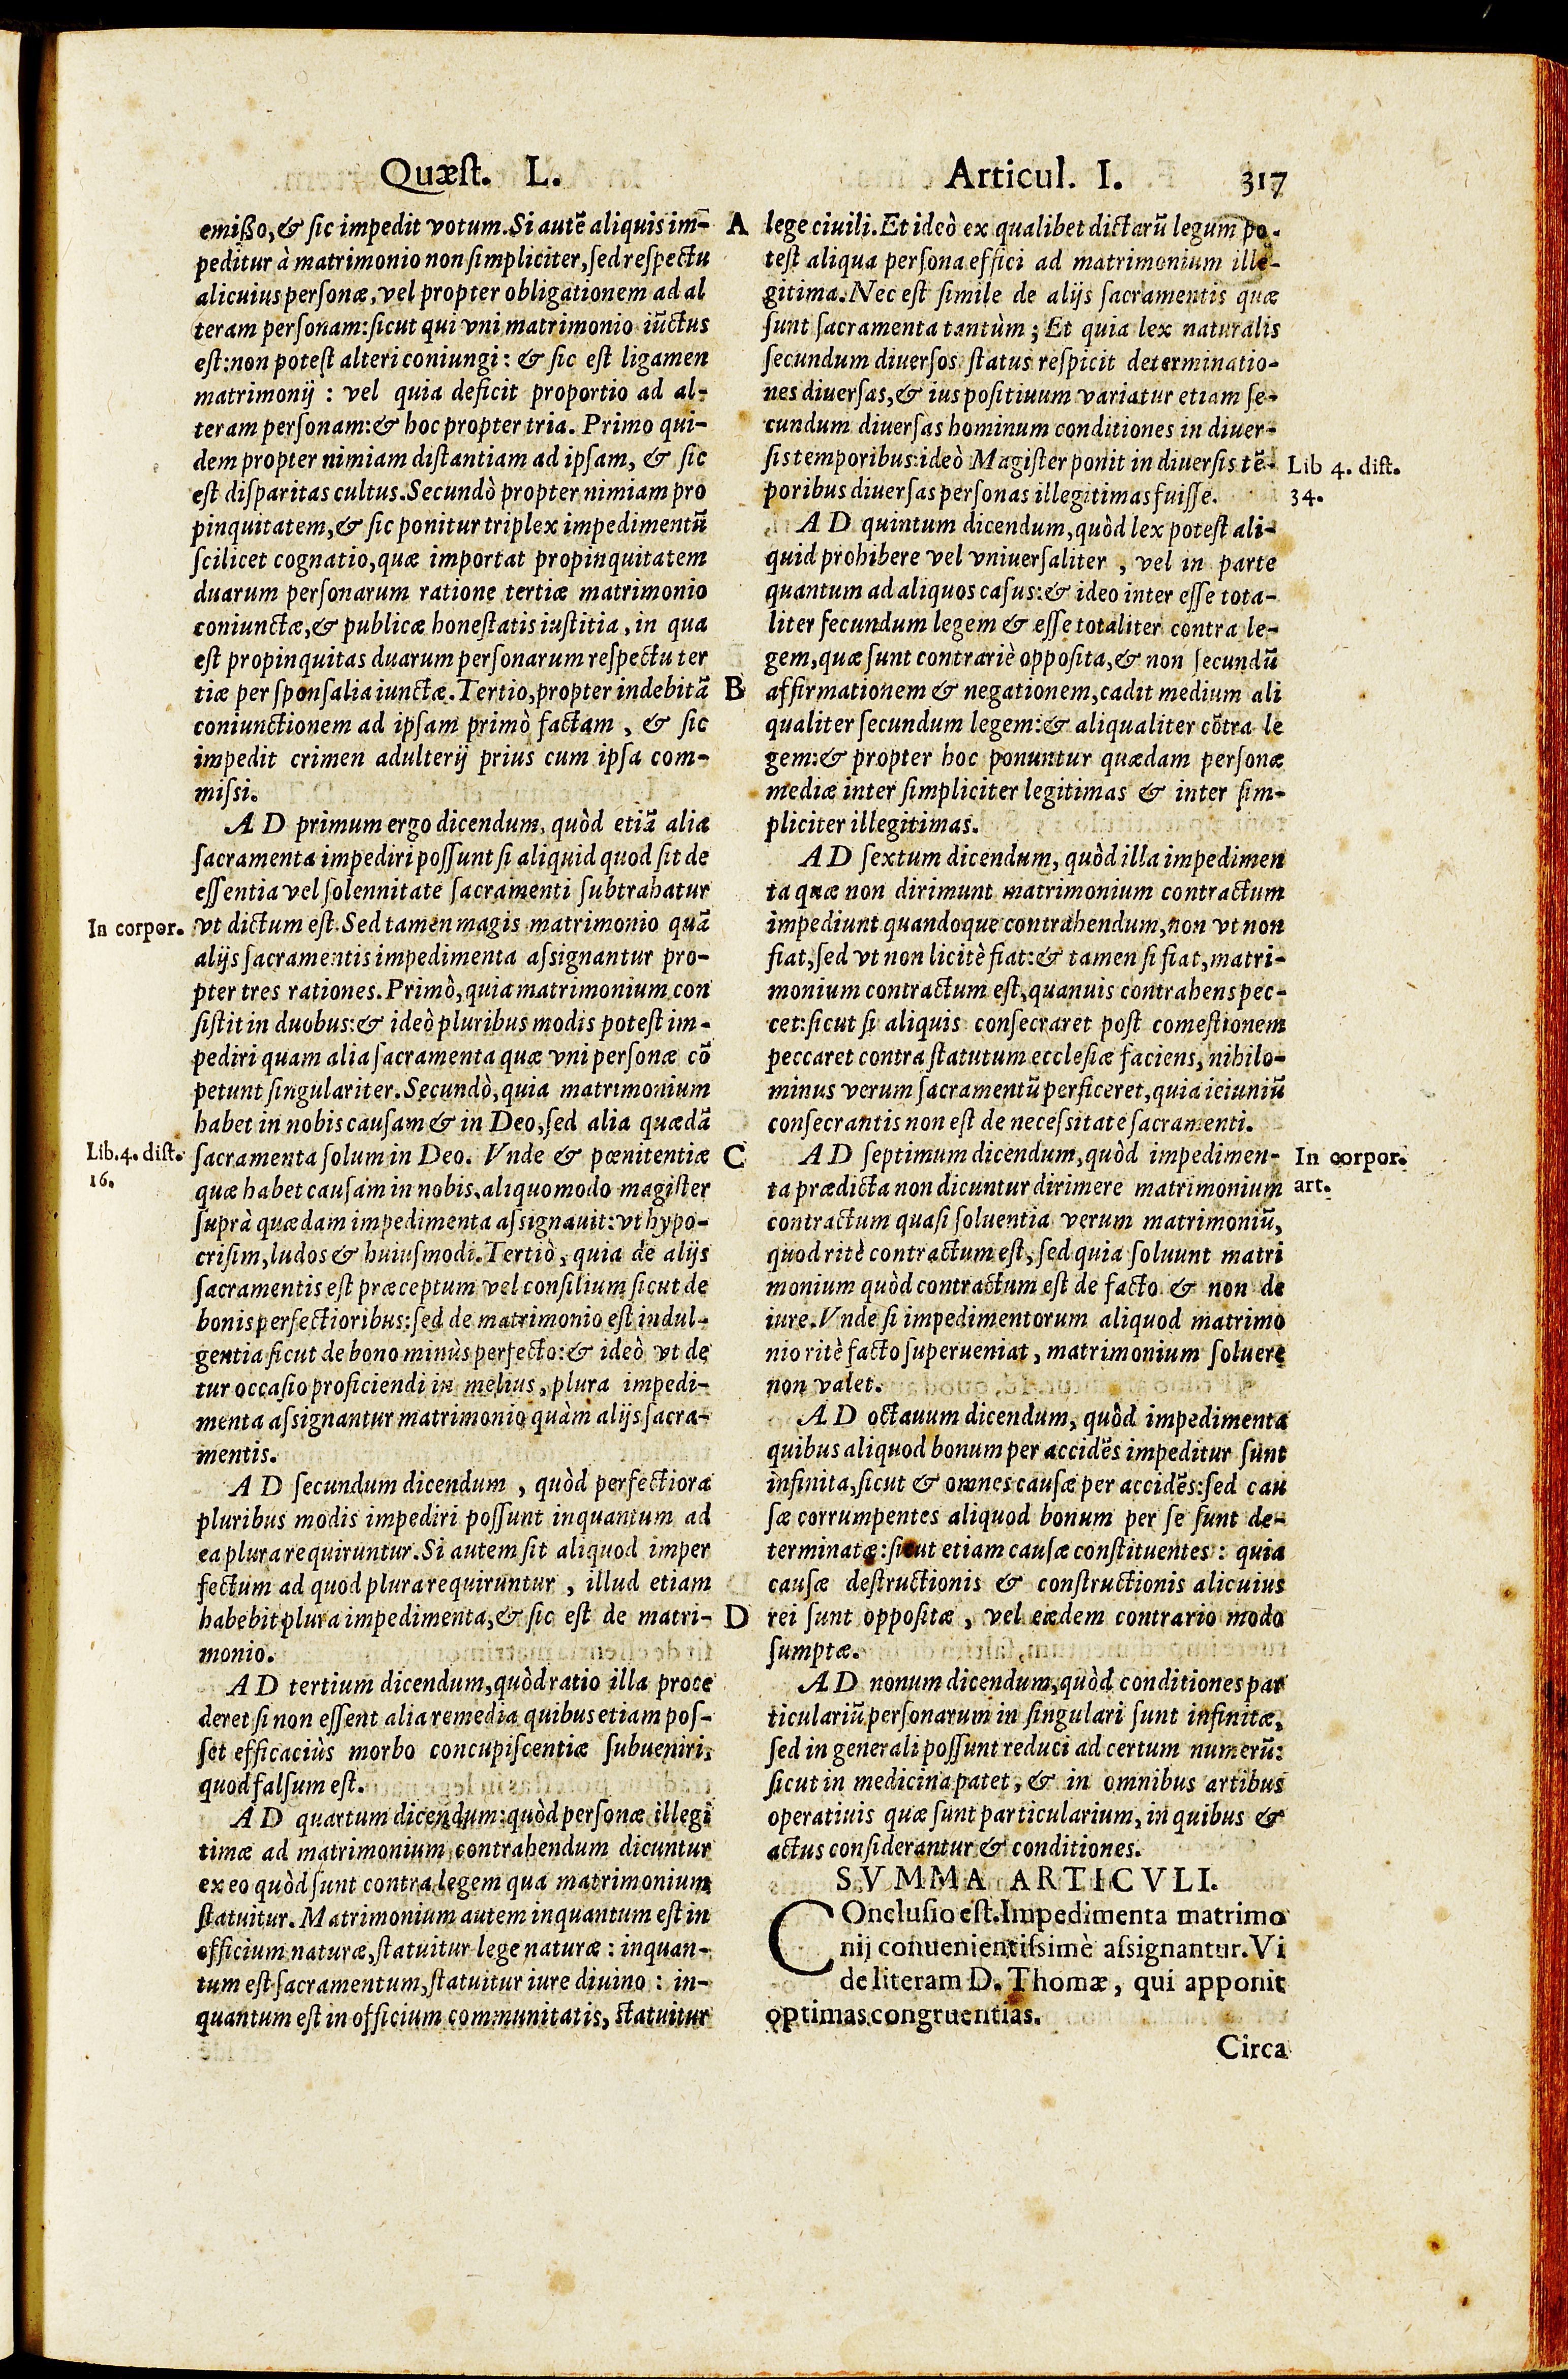 Quæſt. L.
emißo, & ſic impedit votum. Si autẽ aliquis im-
peditur à matrimonio non ſimpliciter, ſed reſpectu
alicuius perſonæ, vel propter obligationem ad al
teram perſonam: ſicut qui vni matrimonio iũctus
eſt: non poteſt alteri coniungi: & ſic eſt ligamen
matrimonij : vel quia deficit proportio ad al-
teram perſonam: & hoc propter tria. Primo qui-
dem propter nimiam diſtantiam ad ipſam, & ſic
eſt diſparitas cultus. Secundò propter nimiam pro
pinquitatem, & ſic ponitur triplex impedimentũ
ſcilicet cognatio, quæ importat propinquitatem
duarum perſonarum ratione tertiæ matrimonio
coniunctæ, & publicæ honeſtatis iuſtitia, in qua
eſt propinquitas duarum perſonarum reſpectu ter
tiæ per ſponſalia iunctæ. Tertio, propter indebitã
coniunctionem ad ipſam primò factam, & ſic
impedit crimen adulterij prius cum ipſa com-
miſsi.
AD primum ergo dicendum, quòd etiã alia
ſacramenta impediri poſſunt ſi aliquid quod ſit de
eſſentia vel ſolennitate ſacramenti ſubtrahatur
In corpor.
vt dictum eſt. Sed tamen magis matrimonio quã
alijs ſacramentis impedimenta aſsignantur pro-
pter tres rationes. Primò, quia matrimonium con
ſiſtit in duobus: & ideò pluribus modis poteſt im-
pediri quam alia ſacramenta quæ vni perſonæ cõ
petunt ſingulariter. Secundò, quia matrimonium
habet in nobis cauſam & in Deo, ſed alia quædã
Lib. 4. diſt.
16.
ſacramenta ſolum in Deo. Vnde & pœnitentiæ
quæ habet cauſam in nobis, aliquo modo magiſter
ſuprà quædam impedimenta aſsignauit: vt hypo-
criſim, ludos & huiuſmodi. Tertiò, quia de alijs
ſacramentis eſt præceptum vel conſilium ſicut de
bonis perfectioribus: ſed de matrimonio eſt indul-
gentia ſicut de bono minùs perfecto: & ideò vt de
tur occaſio proficiendi in melius, plura impedi-
menta aſsignantur matrimonio quàm alijs ſacra-
mentis.
AD ſecundum dicendum, quòd perfectiora
pluribus modis impediri poſſunt inquantum ad
ea plura requiruntur. Si autem ſit aliquod imper
fectum ad quod plura requiruntur, illud etiam
habebit plura impedimenta, & ſic eſt de matri-
monio.
AD tertium dicendum, quòd ratio illa proce
deret ſi non eſſent alia remedia quibus etiam poſ-
ſet efficaciùs morbo concupiſcentiæ ſubueniri,
quod falſum eſt.
AD quartum dicendum: quòd perſonæ illegi
timæ ad matrimonium contrahendum dicuntur
ex eo quòd ſunt contra legem qua matrimonium
ſtatuitur. Matrimonium autem inquantum eſt in
officium naturæ, ſtatuitur lege naturæ: inquan-
tum eſt ſacramentum, ſtatuitur iure diuino: in-
quantum eſt in officium communitatis, ſtatuitur
A
B
C
D
Articul. I. 317
lege ciuili. Et ideò ex qualibet dictarũ legum po-
teſt aliqua perſona effici ad matrimonium ille-
gitima. Nec eſt ſimile de alijs ſacramentis quæ
ſunt ſacramenta tantùm; Et quia lex naturalis
ſecundum diuerſos ſtatus reſpicit determinatio-
nes diuerſas, & ius poſitiuum variatur etiam ſe-
cundum diuerſas hominum conditiones in diuer-
ſis temporibus: ideò Magiſter ponit in diuerſis tẽ-
poribus diuerſas perſonas illegitimas fuiſſe.
Lib 4. diſt.
34.
AD quintum dicendum, quòd lex poteſt ali-
quid prohibere vel vniuerſaliter, vel in parte
quantum ad aliquos caſus: & ideo inter eſſe tota-
liter ſecundum legem & eſſe totaliter contra le-
gem, quæ ſunt contrariè oppoſita, & non ſecundũ
affirmationem & negationem, cadit medium ali
qualiter ſecundum legem: & aliqualiter cõtra le
gem: & propter hoc ponuntur quædam perſonæ
mediæ inter ſimpliciter legitimas & inter ſim-
pliciter illegitimas.
AD ſextum dicendum, quòd illa impedimen
ta quæ non dirimunt matrimonium contractum
impediunt quandoque contrahendum, non vt non
fiat, ſed vt non licitè fiat: & tamen ſi fiat, matri-
monium contractum eſt, quanuis contrahens pec-
cet: ſicut ſi aliquis conſecraret poſt comeſtionem
peccaret contra ſtatutum eccleſiæ faciens, nihilo-
minus verum ſacramentũ perficeret, quia ieiuniũ
conſecrantis non eſt de neceſsitate ſacramenti.
AD ſeptimum dicendum, quòd impedimen-
In corpor.
art.
ta prædicta non dicuntur dirimere matrimonium
contractum quaſi ſoluentia verum matrimoniũ,
quod ritè contractum eſt, ſed quia ſoluunt matri
monium quòd contractum eſt de facto & non de
iure. Vnde ſi impedimentorum aliquod matrimo
nio ritè facto ſuperueniat, matrimonium ſoluere
non valet.
AD octauum dicendum, quòd impedimenta
quibus aliquod bonum per accidẽs impeditur ſunt
infinita, ſicut & omnes cauſæ per accidẽs: ſed cau
ſæ corrumpentes aliquod bonum per ſe ſunt de-
terminatæ: ſicut etiam cauſæ conſtituentes: quia
cauſæ deſtructionis & conſtructionis alicuius
rei ſunt oppoſitæ, vel eædem contrario modo
ſumptæ.
AD nonum dicendum, quòd conditiones par
ticulariũ perſonarum in ſingulari ſunt infinitæ,
ſed in generali poſſunt reduci ad certum numerũ:
ſicut in medicina patet, & in omnibus artibus
operatiuis quæ ſunt particularium, in quibus &
actus conſiderantur & conditiones.
SVMMA ARTICVLI.
COncluſio eſt. Impedimenta matrimo
nij conuenientiſsimè aſsignantur. Vi
de literam D. Thomæ, qui apponit
optimas congruentias.
Circa